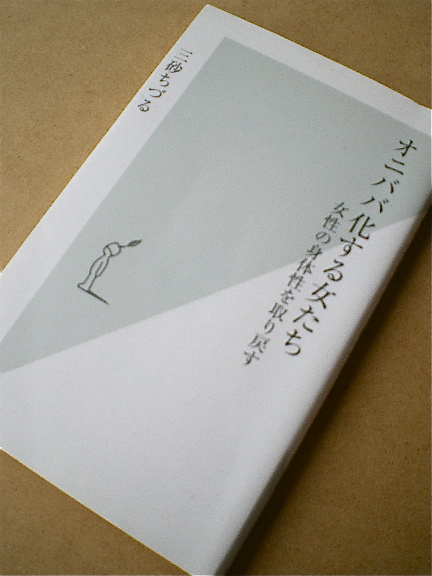 オニババ化する女たち
女性の身体性を取り戻す
三砂ちづる